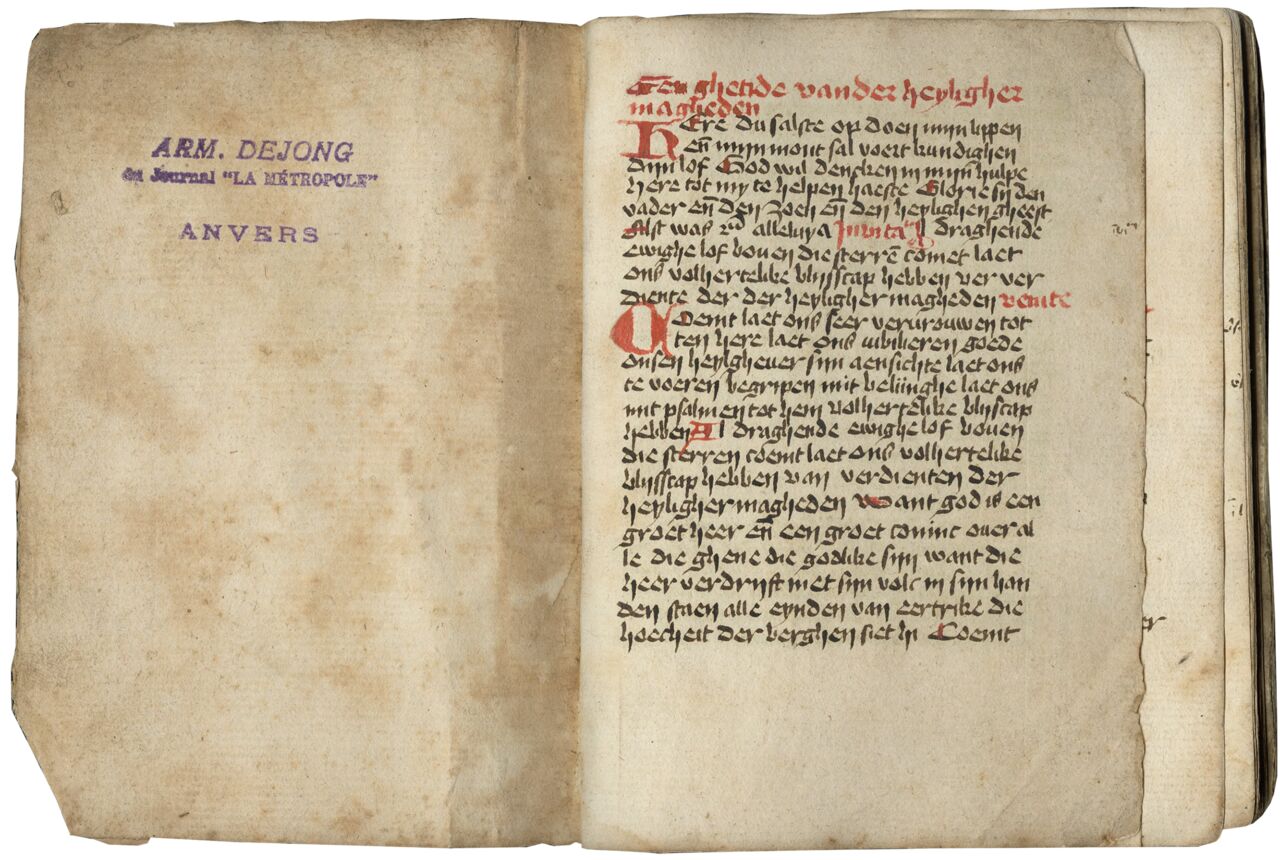 ARM. DEJONG
du Journal "LA MÉTROPOLE"
ANVERS
ghetide vander heyligher
magheden
Here du salste op doen mijn lippen
En̄ mijn mont sal voert kundighen
dijn lof God wil dencken in mijn̄ hulpe
here tot my te helpen haeste Glorie sij den
vader en̄ den zoen en̄ den heylighen gheest
Alst was alleluya Invita Al draghende
ewighe lof boven die sterrē comet laet
ons volhertelike blijsscap hebben ver ver
diente der der heyligher magheden venite
Coemt laet ons seer vervrouwen tot
ten here laet ons iubilieren goede
onsen heylghever sijn aensichte laet ons
te voeren begripen mit beliinghe laet ons
mit psalmen tot hem volhertelike blijscap
hebben Al draghende ewighe lof boven
die sterren coemt laet ons volhertelike
blijsscap hebben van verdienten der
heyligher magheden Want god is een
groet heer en̄ een groet coninc over al
le die ghene die godlike sijn want die
heer verdrijft niet sijn volc in sijn han
den staen alle eynden van eertrike die
hoecheit der berghen siet hi Coemt